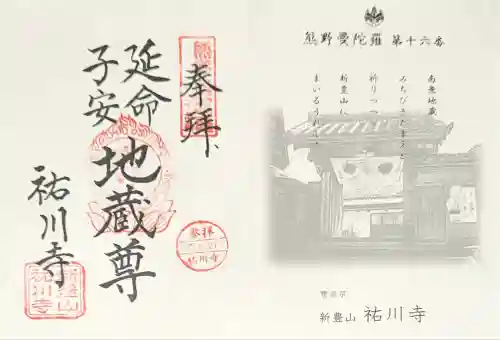 奉拝
延命
子安
地蔵尊
祐川寺
新豊山
祐川寺
参拝
祐川寺
熊野曼陀羅 第十六番
南無地蔵
みちびきたまえと
祈りつつ
新豊山に
まいるうれしさ
曹洞宗
新豊山 祐川寺